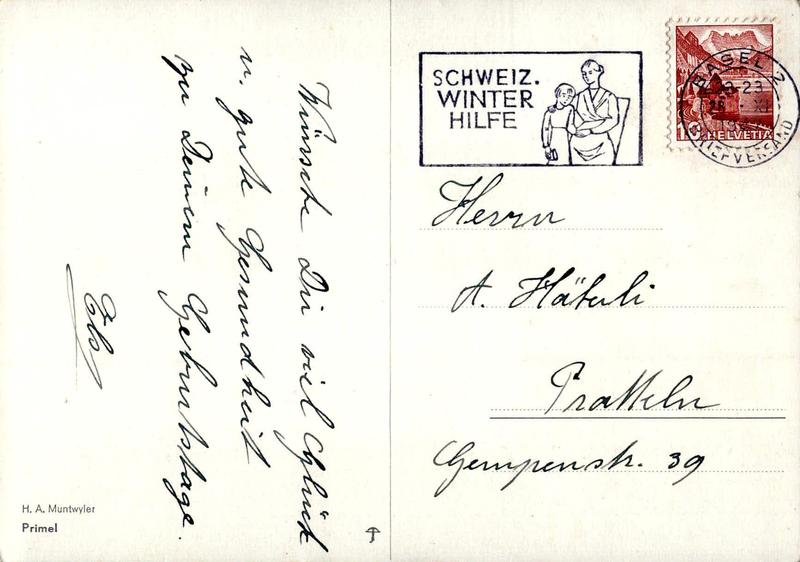 Wünsche Dir viel Glück
u. gute Gesundheit
zu Deinem Geburtstage.
Els
H. A. Muntwyler
Primel
SCHWEIZ.
WINTER
HILFE
BASEL 2
BRIEFVERSAND
10 HELVETIA
Herrn
A. Häfeli
Pratteln
Gempenstr. 39